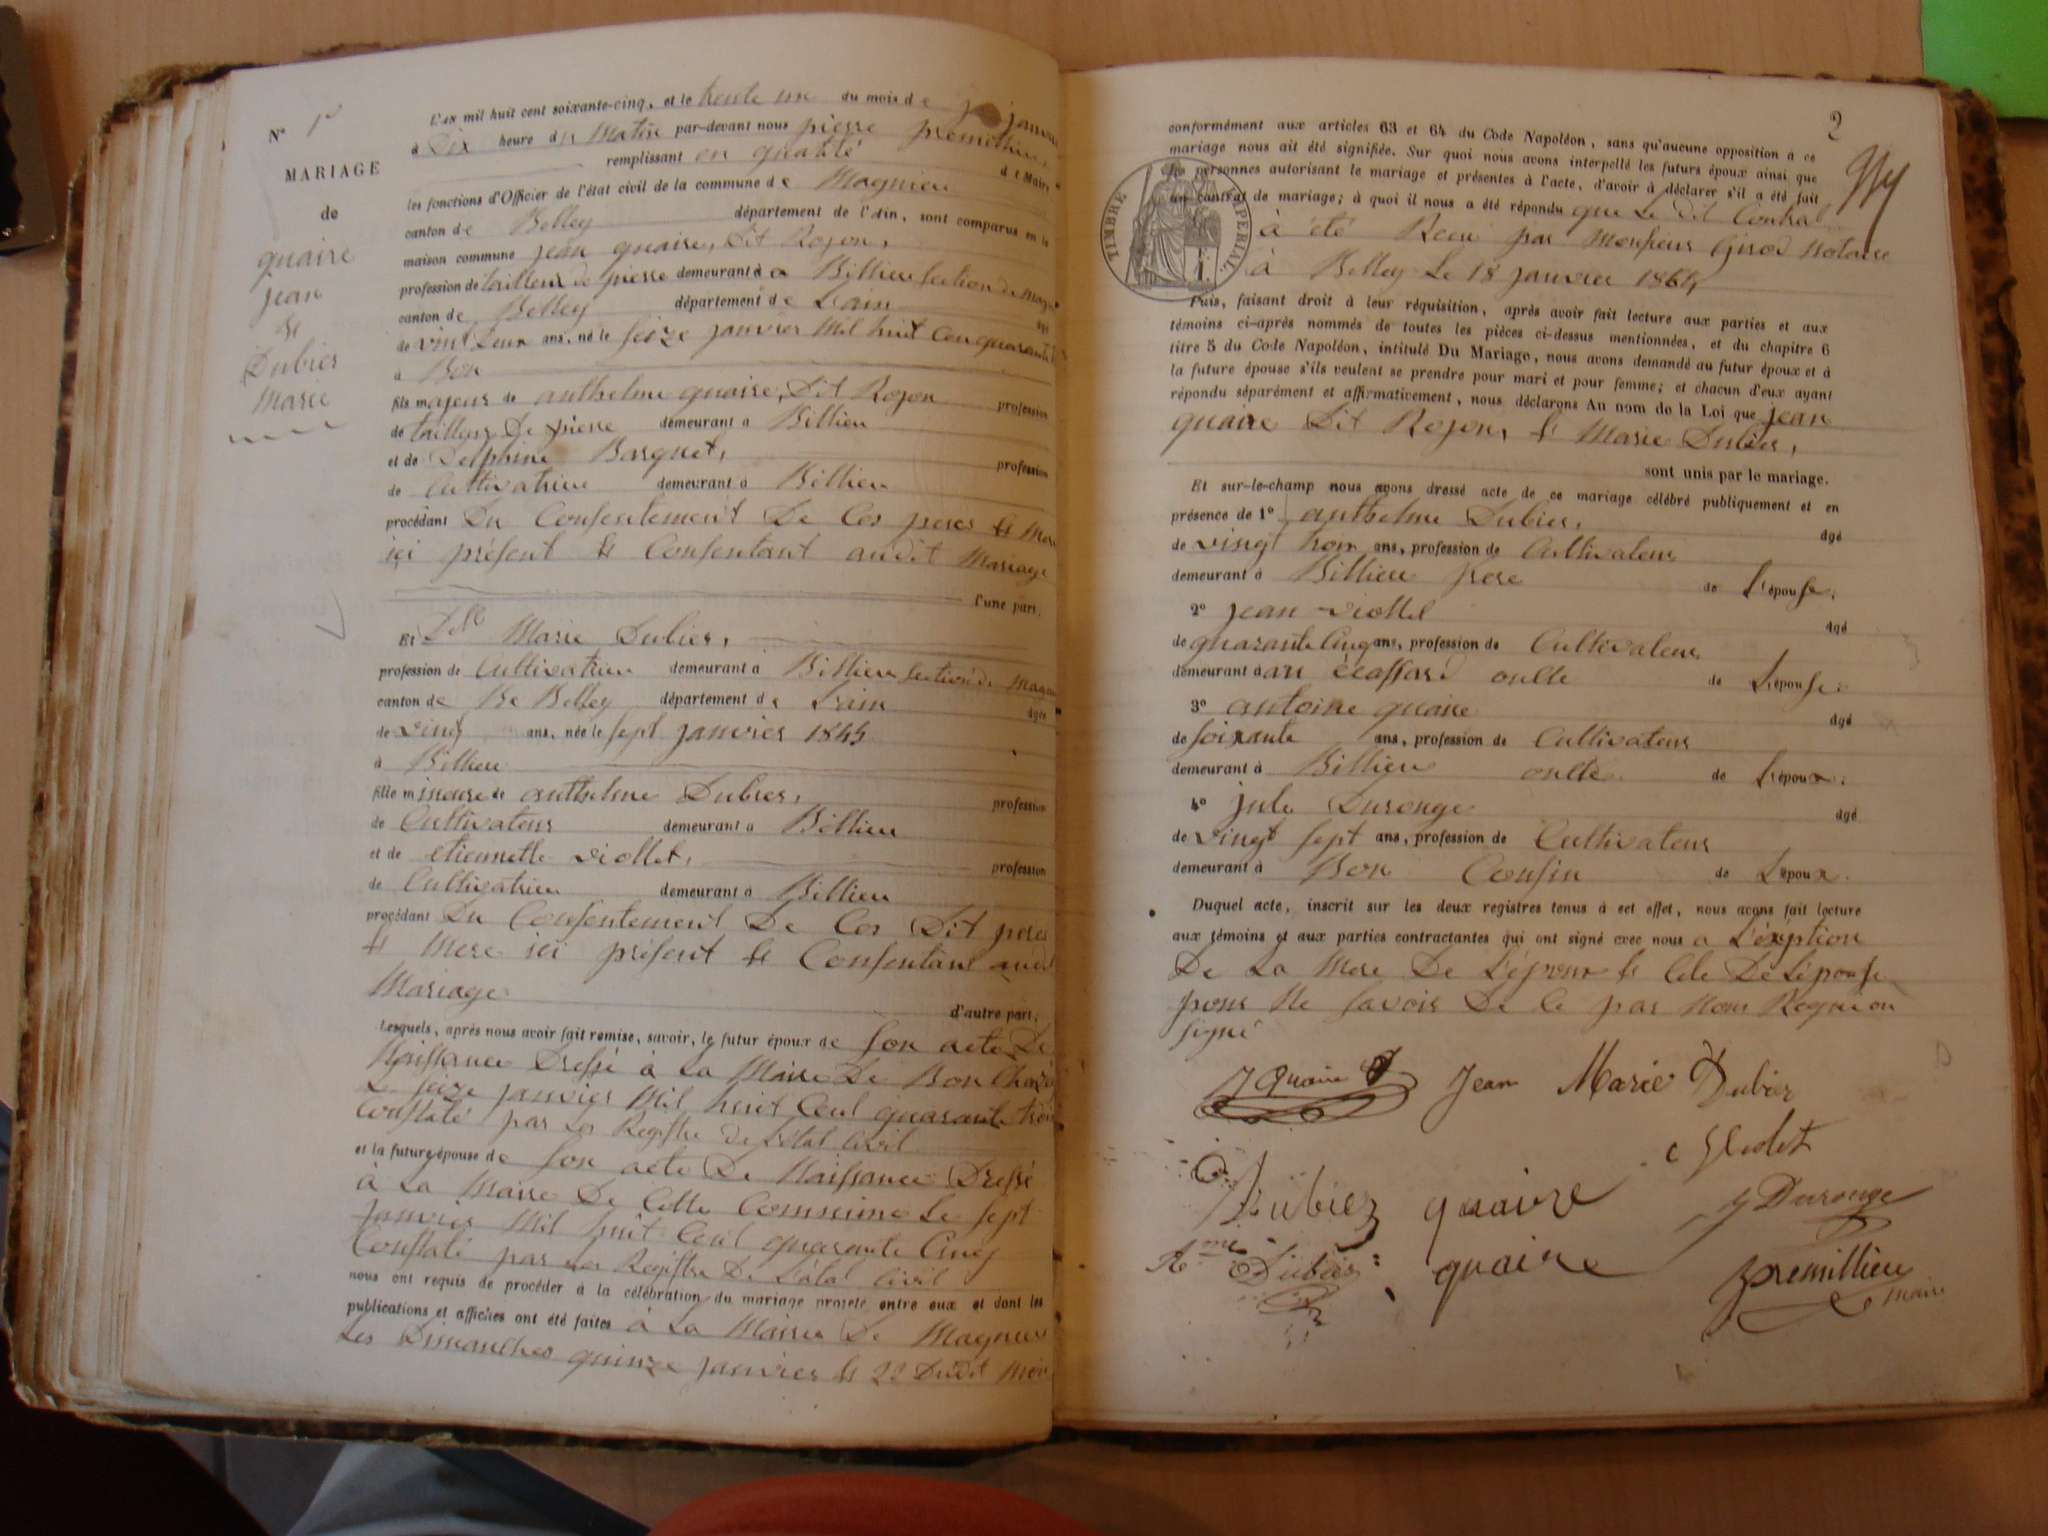 N° 1er
MARIAGE
de
quaire
jean
&
Dubier
Marie
L'an mil huit cent soixante-cinq, et le trente un du mois de janvier
à Dix heure du Matin par-devant nous pierre premillieu,
remplissant en qualité de Maire
les fonctions d'Officier de l'état civil de la commune de Magnieu
canton de Belley département de l'Ain, sont comparus en la
maison commune jean quaire, Dit Rojon,
profession de tailleur de pierre demeurant à a Billieu section de Mag
canton de Belley département de Lain âgé
de vint Deux ans, né le seize janvier Mil huit cen quarante
à Bon
fils majeur de anthelme quaire, Dit Rojon profession
de tailleur De pierre demeurant à Billieu
et de Delphine Barquet, profession
de Cultivatrice demeurant à Billieu
procédant Du Consentement De Ces peres & Mere
ici présent & Consentant audit Mariage
l'une part.
Et Delle Marie Dubier,
profession de Cultivatrice demeurant à Billieu section de Magnieu
canton de De Belley département de Lain âgée
de vingt ans, née le sept janvier 1845
à Billieu
fille mineure de anthelme Dubier, profession
de Cultivateur demeurant à Billieu
et de etiennette viollet, profession
de Cultivatrice demeurant à Billieu
procédant Du Consentement De Ces Dit peres
& Mere ici présent & Consentant audit
Mariage d'autre part;
Lesquels, après nous avoir fait remise, savoir, le futur époux de son acte De
Naissance Dressé à La Mairie De Bon
Le seize janvier Mil huit Cent quarante trois
Constaté par Les Registre de L'état Civil
et la future épouse de son acte De Naissance Dressé
à La Mairie De Cette Commune Le sept
janvier Mil huit Cent quarante Cinq
Constaté par Les Registre De L'état Civil
nous ont requis de procéder à la célébration du mariage projeté entre eux et dont les
publications et affiches ont été faites à La Mairie De Magnieu
Les Dimanches quinze janvier & 22 Dudit Mois
2
conformément aux articles 63 et 64 du Code Napoléon, sans qu'aucune opposition à ce
mariage nous ait été signifiée. Sur quoi nous avons interpellé les futurs époux ainsi que
les personnes autorisant le mariage et présentes à l'acte, d'avoir à déclarer s'il a été fait
un contrat de mariage; à quoi il nous a été répondu que Le dit Contrat
à été Recu par Monsieur Girod Notaire
à Belley Le 18 janvier 1865
TIMBRE IMPÉRIAL
Puis, faisant droit à leur réquisition, après avoir fait lecture aux parties et aux
témoins ci-après nommés de toutes les pièces ci-dessus mentionnées, et du chapitre 6
titre 5 du Code Napoléon, intitulé Du Mariage, nous avons demandé au futur époux et à
la future épouse s'ils veulent se prendre pour mari et pour femme; et chacun d'eux ayant
répondu séparément et affirmativement, nous déclarons Au nom de la Loi que jean
quaire Dit Rojon, & Marie Dubier,
sont unis par le mariage.
Et sur-le-champ nous avons dressé acte de ce mariage célébré publiquement et en
présence de 1° anthelme Dubier, âgé
de vingt trois ans, profession de Cultivateur
demeurant à Billieu frere de L'épouse;
2° jean viollet âgé
de quarante Cinq ans, profession de Cultivateur
demeurant à au écassard oncle de L'épouse;
3° antoine quaire âgé
de soixante ans, profession de Cultivateur
demeurant à Billieu oncle de L'époux;
4° jule Durouge âgé
de vingt sept ans, profession de Cultivateur
demeurant à Bon Cousin de L'époux.
Duquel acte, inscrit sur les deux registres tenus à cet effet, nous avons fait lecture
aux témoins et aux parties contractantes qui ont signé avec nous a L'éxeption
De La Mere De L'époux & Cele De L'épouse
pour Ne Savoir De Ce par Nous Requi on
signé
J Quaire Jean Marie Dubier
Viollet
Dubiez quaire J Durouge
Dubier quaire premillieu
maire